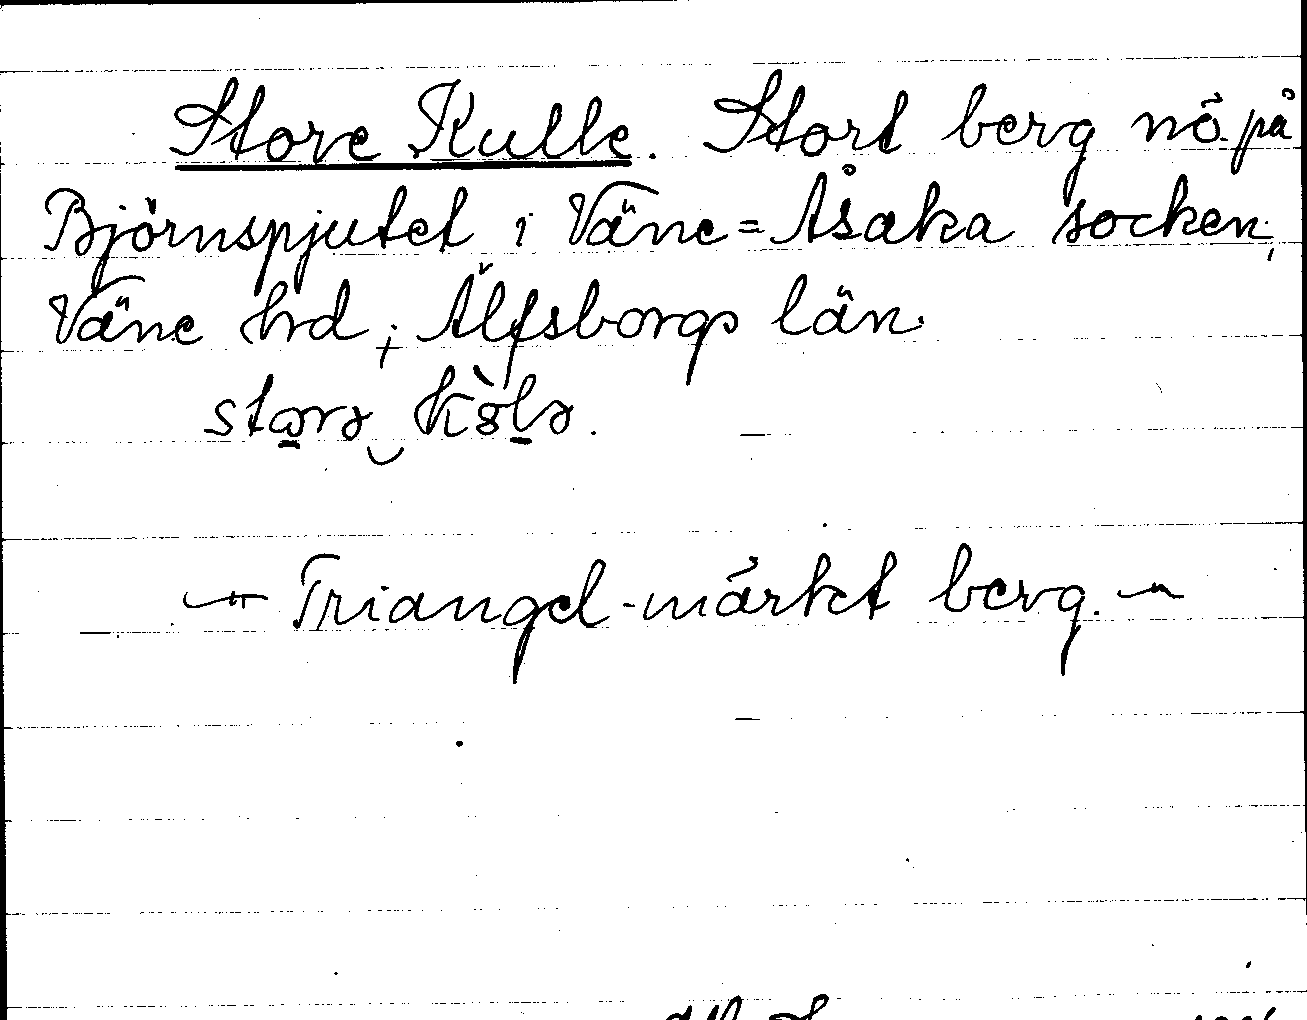 Store Kulle. Stort berg nö. på
Björnspjutet i Väne=Åsaka socken,
Väne hrd, Älfsborgs län.
— Triangel-märkt berg. —